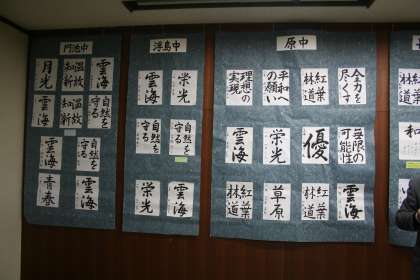 門池中
月光
温故
知新
雲海
雲海
温故
知新
自然を
守る
雲海
自然を
守る
青春
雲海
浮島中
雲海
栄光
自然を
守る
自然を
守る
栄光
雲海
原中
理想の
実現
平和へ
の願い
紅葉
林道
全力を
尽くす
雲海
栄光
優
無限の
可能性
紅葉
林道
草原
紅葉
林道
雲海